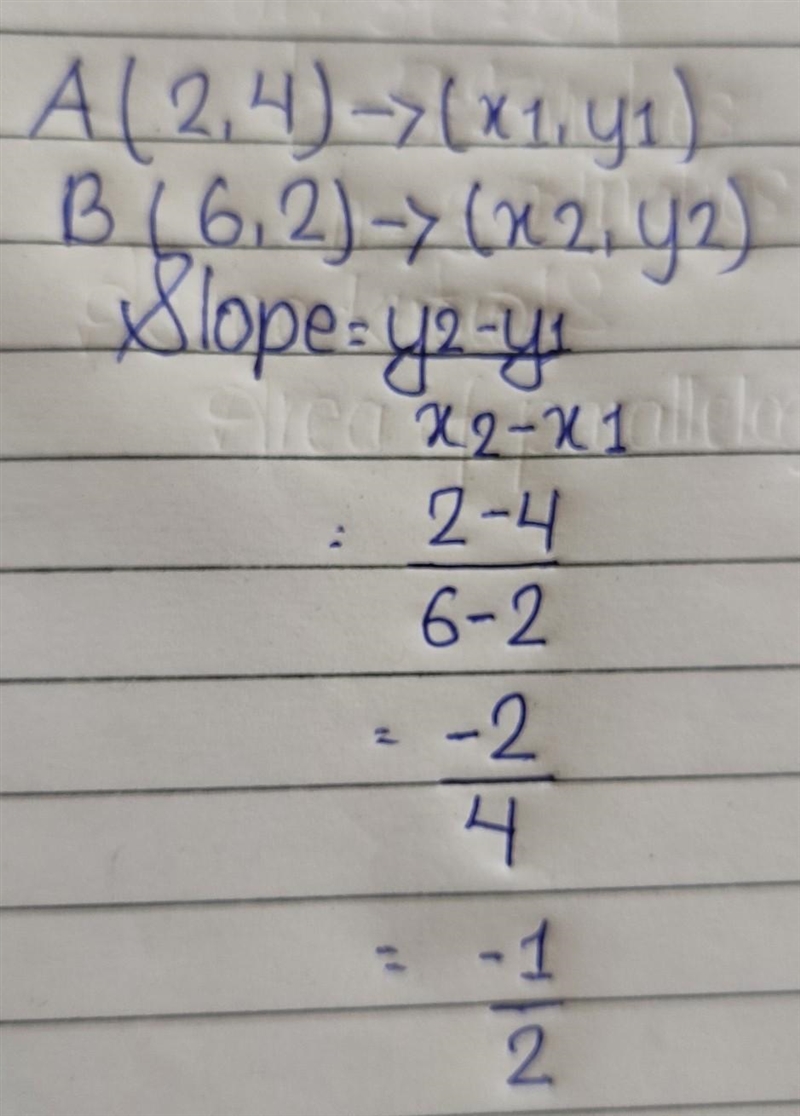 A(2,4)->(x1,y1)
B(6,2)->(x2,y2)
Slope=y2-y1
x2-x1
= 2-4
6-2
= -2
4
= -1
2